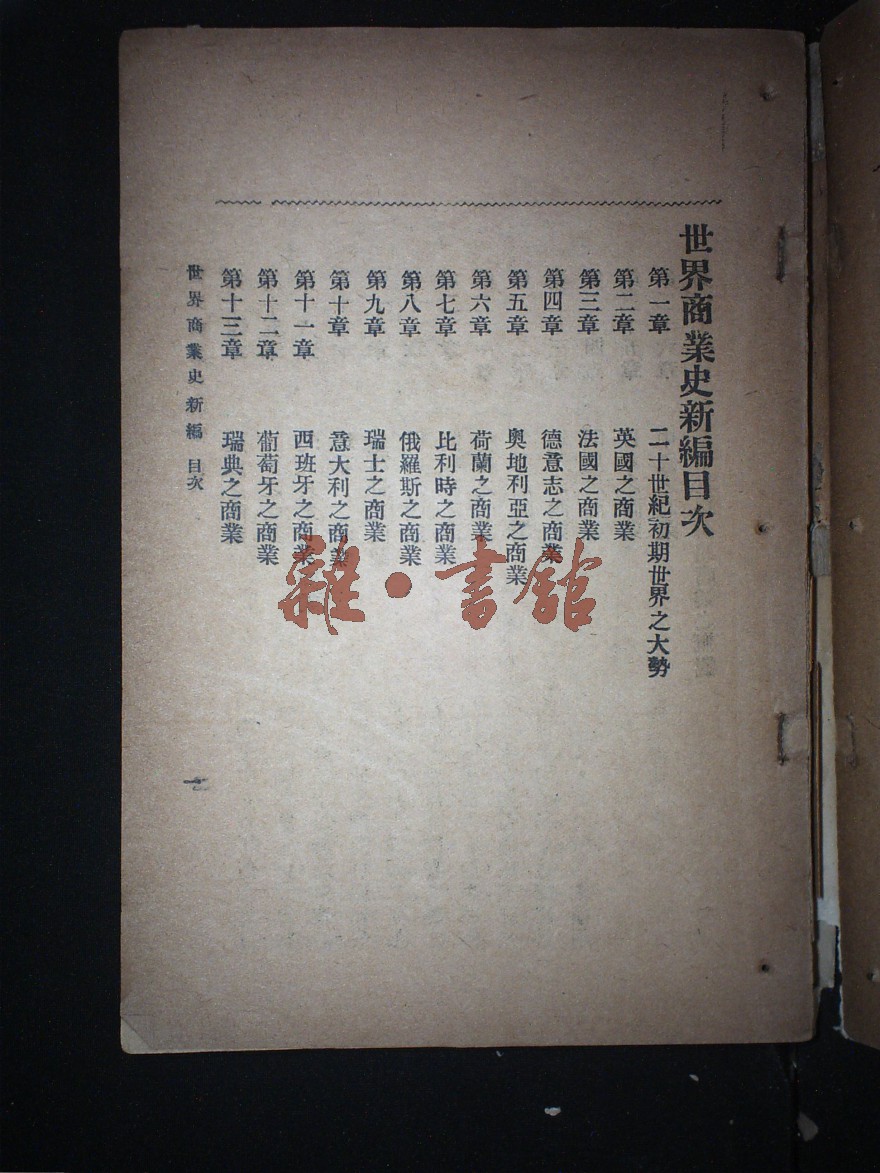 世界商業史新編目次
第一章 二十世紀初期世界之大勢
第二章 英國之商業
第三章 法國之商業
第四章 德意志之商業
第五章 奧地利亞之商業
第六章 荷蘭之商業
第七章 比利時之商業
第八章 俄羅斯之商業
第九章 瑞士之商業
第十章 意大利之商業
第十一章 西班牙之商業
第十二章 葡萄牙之商業
第十三章 瑞典之商業
世界商業史新編 目次
一
雜·書館